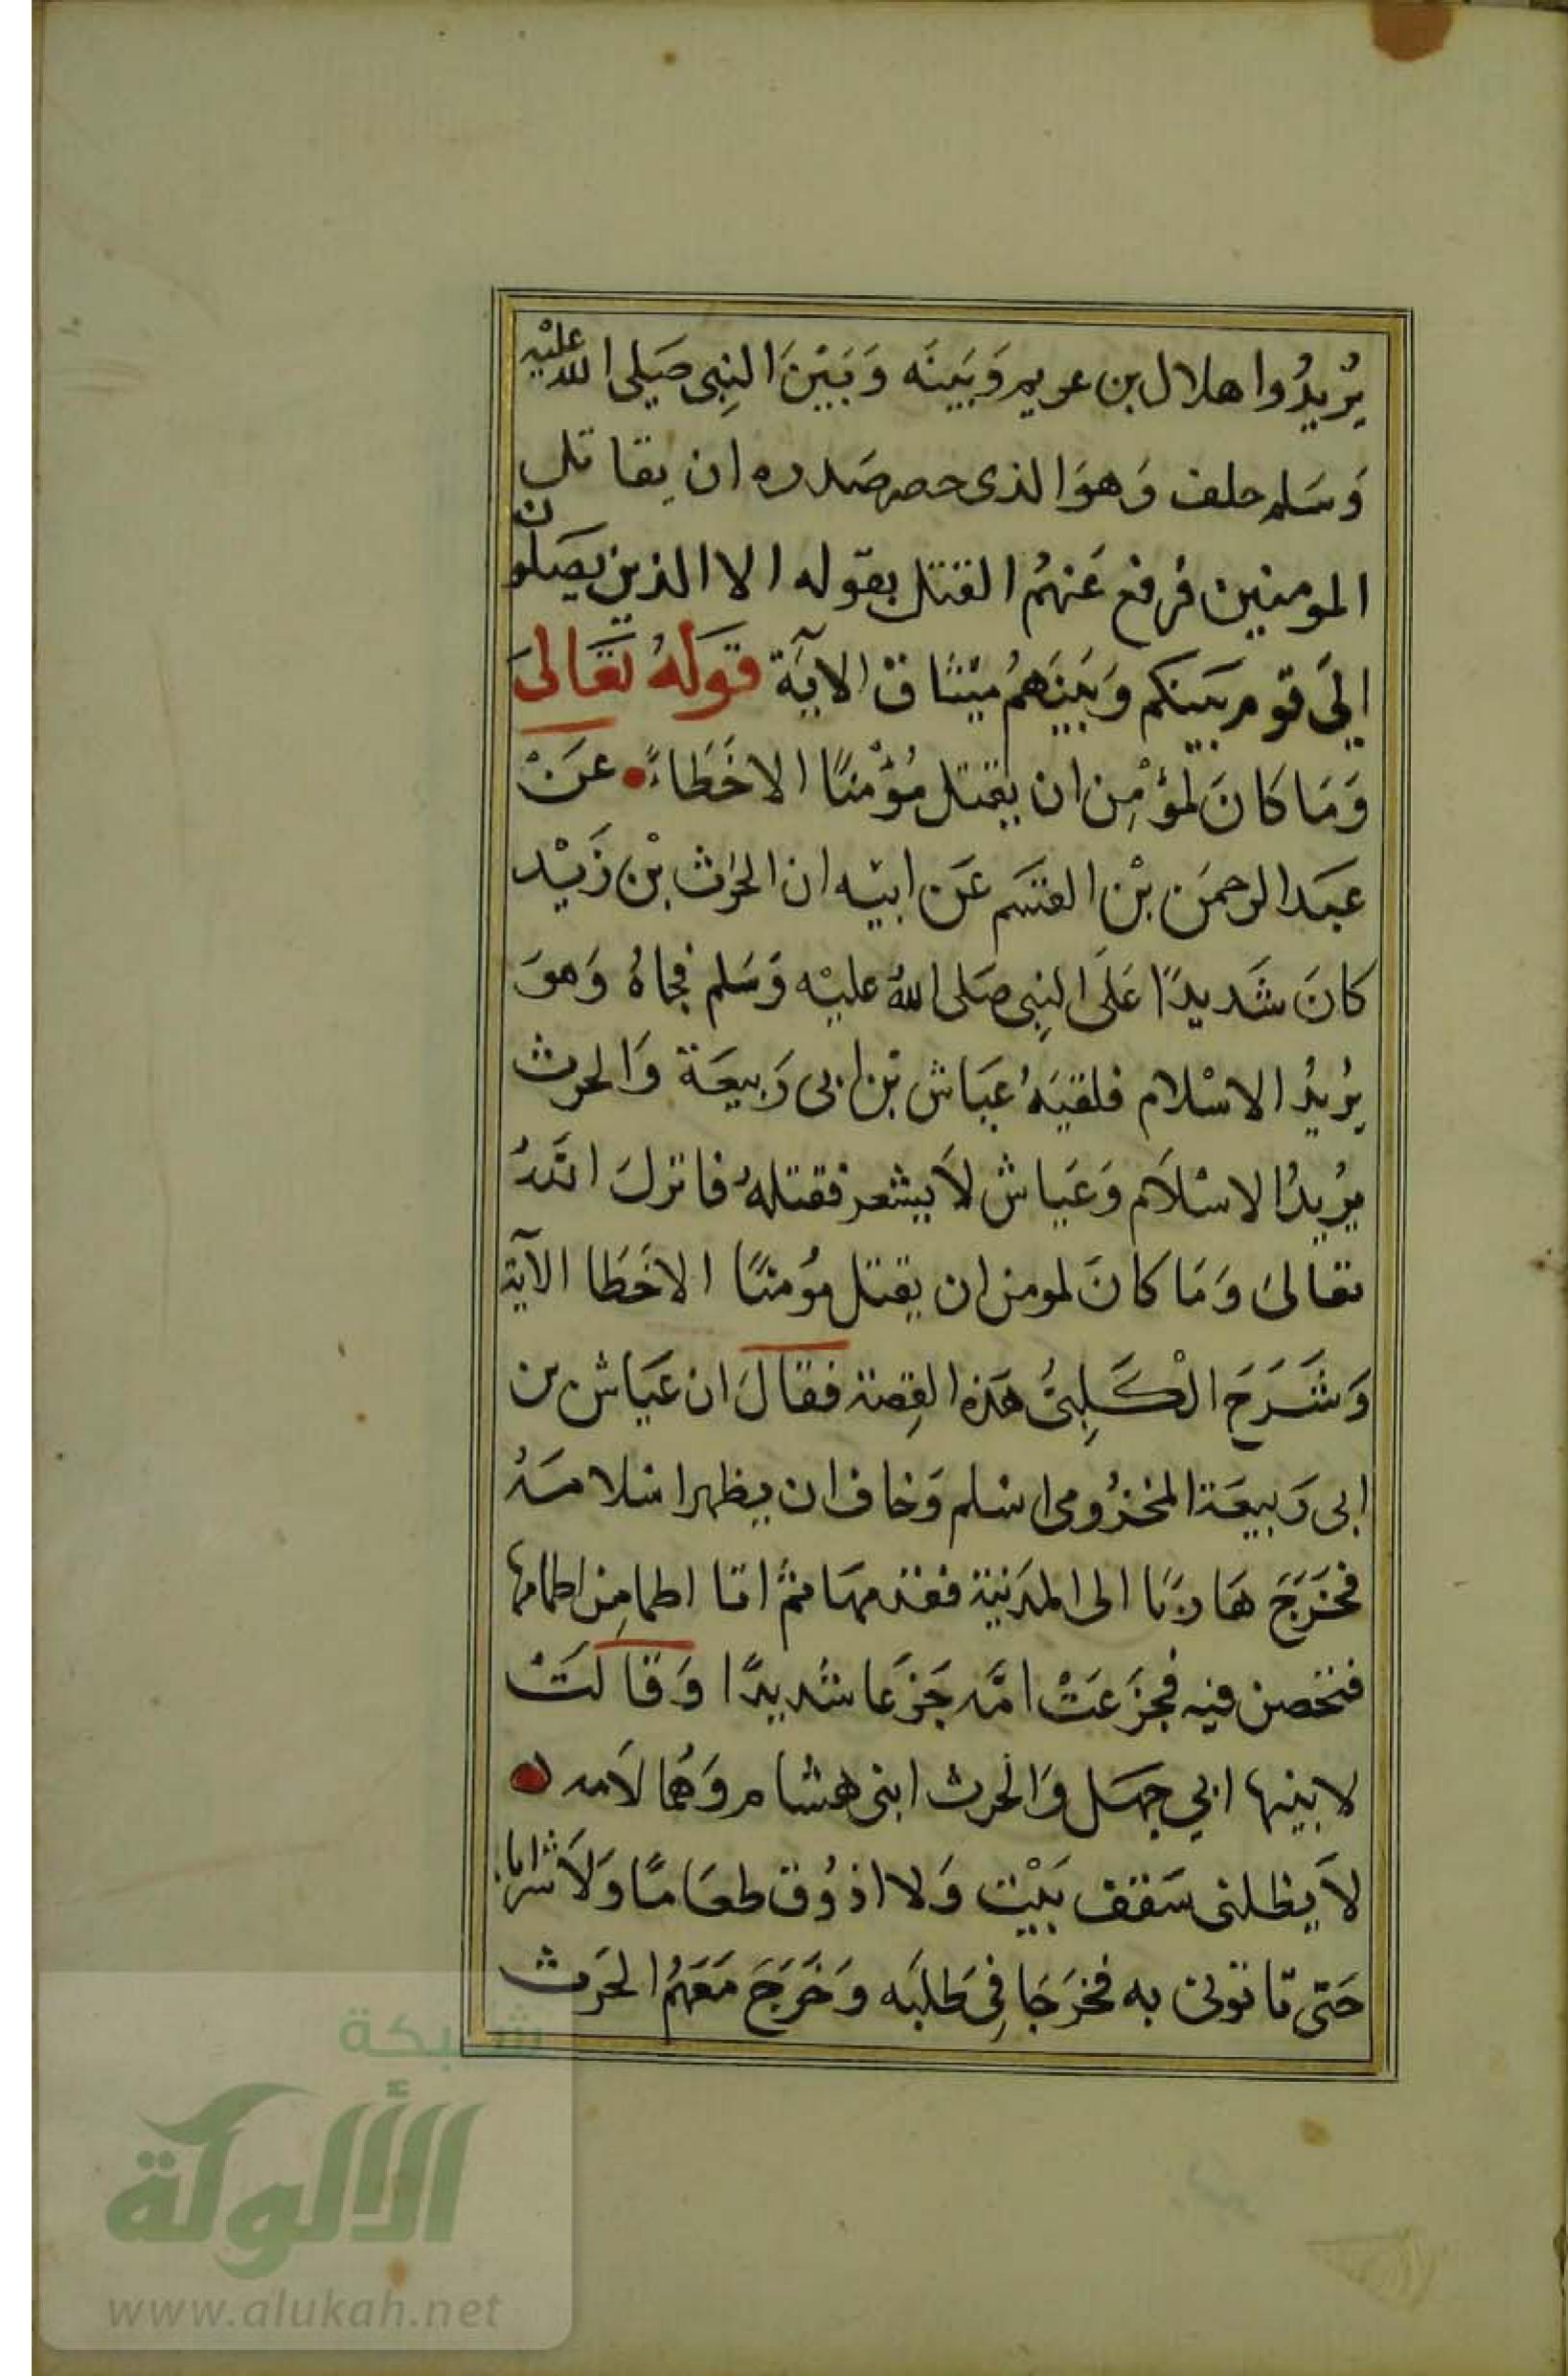 يُرِيدُوا هلال بن عويم وَبَينَه وَبَيْنَ النِبى صَلى الله عليْه
وَسَلم حلف وَهوَ الذى حصر صَدره ان يقاتل
المومنين فرفع عَنهُم القتل بقوله الا الذين يصَلون
الىَ قوم بَينكم وَبَينَهمُ ميثاق الآية قَولهُ تعَالىَ
وَمَا كانَ لمؤمِن ان يقتل مُؤْمنًا الا خَطَاءً عَنْ
عبَد الرحمَن بْن القسَم عَن ابيْه ان الحرث بْن زَيْد
كانَ شَديدًا عَلىَ النِبى صَلى اللهُ عليْه وَسَلم فجاهُ وَهوَ
يُريدُ الاسْلام فلقيَهُ عَيَاش بْن ابى رَبيعَة وَالحرث
يُريدُ الاسْلاَم وَعَياش لاَ يشعر فقتلهُ فانزلَ اللهُ
تعَالىَ وَمَا كانَ لمومن ان يقتل مُومنًا الا خَطَا الآية
وَشَرَحَ الْكَلِبىُّ هَذه القِصة فقالَ ان عَيَاش بن
ابى رَبيعَة المخزُومى اسْلم وَخاف ان يظهر اسْلامَهُ
فخَرَجَ هَاربًا الى المدَنية فقدمهَا ثمَّ اتا اطما مِن اطامها
فتحصن فيه فجزَعَتْ امَّه جَزعَا شَديدًا وَقالَتْ
لابنيها ابي جهَل وَالحرث ابنى هشام وَهُمَا لاَمه
لاَ يظلنى سَقف بَيْت وَلا اذوُق طعَامًا وَلاَ شرابا
حَتى تاتونى به فخرَجَا فِى طَلبَه وَخَرَجَ مَعَهُم الحَرث
شبكة
الألوكة
www.alukah.net